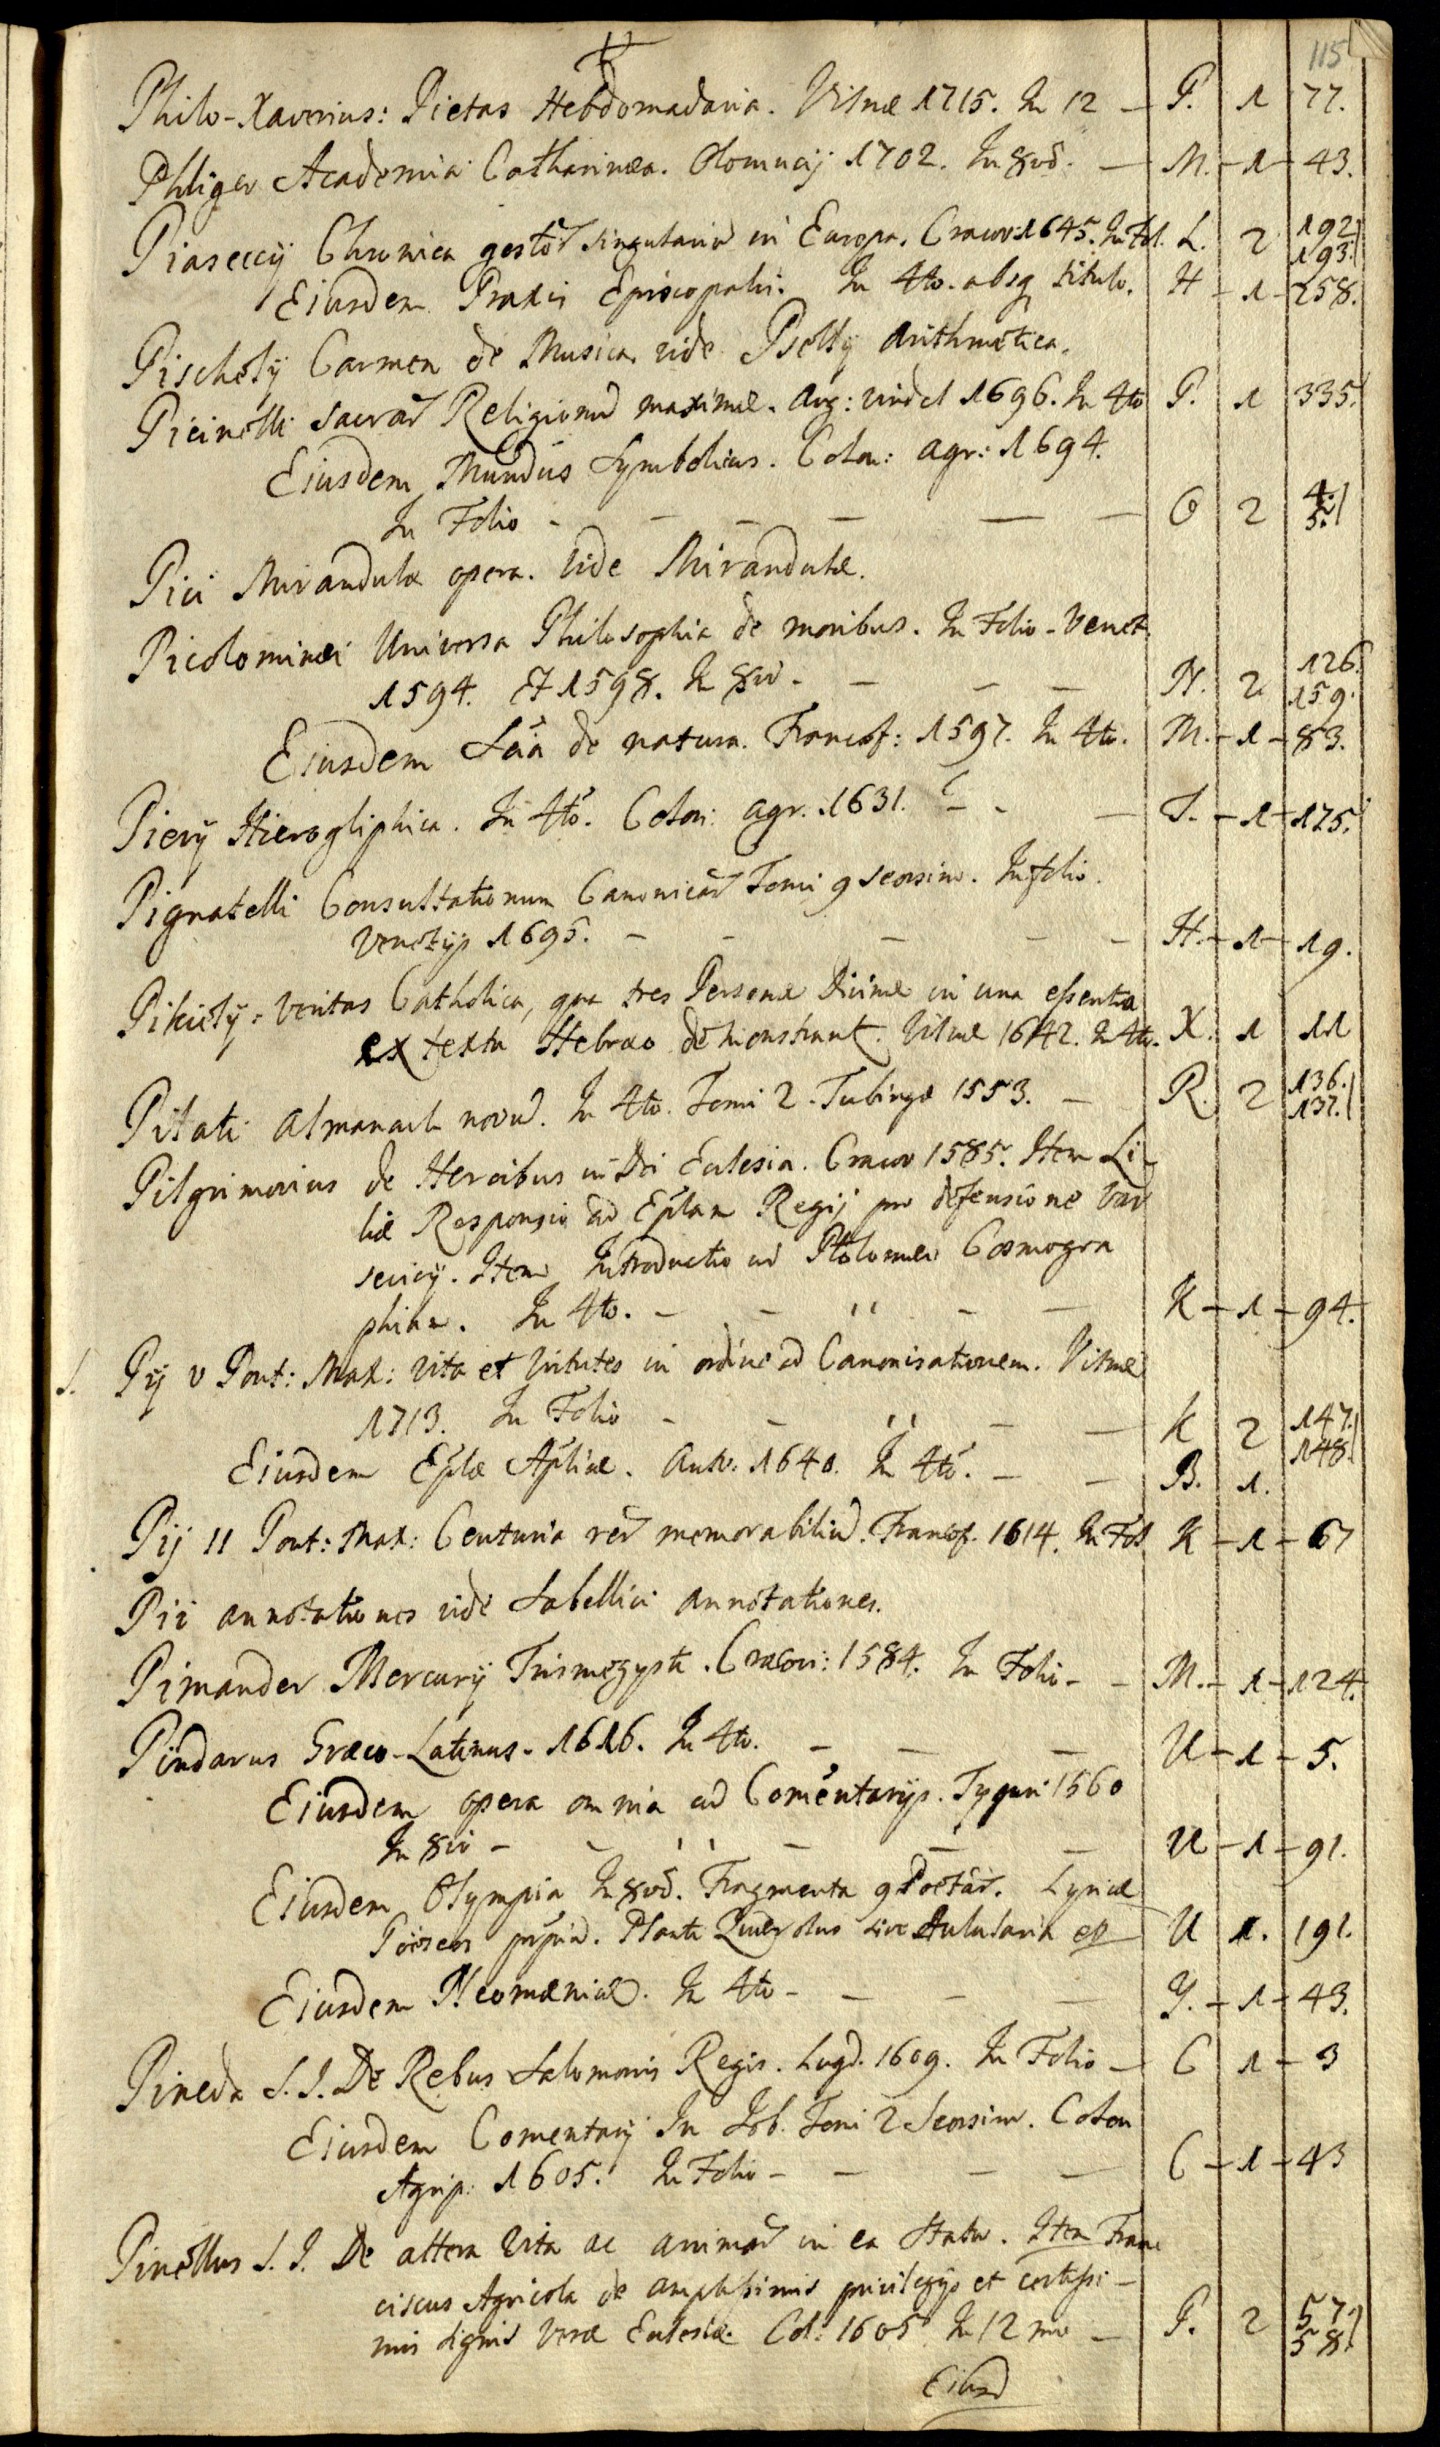 115
Philo-Xaverius: Pietas Hebdomadaria. Vilnæ 1715. In 12 — P. 1 77.
Phliger Academia Catharinæa. Olomucij 1702. In 8vo. — M. - 1 - 43.
Piaseccij Chronica gestor singularium in Europa. Cracov: 1645. In Fol. L. 2 192. 193.
Eiusdem Praxis Episcopalis. In 4to. absq titulo. H - 1 - 258.
Pischelij Carmen de Musica vide Pselly Arithmetica.
Picinelli Sacrar Religionum maximæ. Aug: vindel 1696. In 4to P. 1 335.
Eiusdem Mundus Symbolicus. Colon: agr: 1694.
In Folio - — - — — — O 2 4. 5.
Pici Mirandulæ opera. Vide Mirandulæ.
Picolominei Universa Philosophia de moribus. In Folio - Venet.
1594. Et 1598. In 8vo - — — — N. 2 126. 159.
Eiusdem Sciã de natura. Francof: 1597. In 4to. M. - 1 - 83.
Pierij Hierogliphica. In 4to. Colon: agr. 1631. — - — S. - 1 - 175.
Pignatelli Consultationum Canonicar Tomi 9 seorsim. In folio.
Venetijs 1695. - - — — - H. - 1 - 19.
Pikielij: Veritas Catholica, qua tres Personæ Divinæ in una essentia
ex textu Hebræo demonstrant. Vilnæ 1642. In 4to. X. 1 11
Pitati Almanach novum. In 4to. Tomi 2. Tubingæ 1553. — R. 2 136. 137.
Pilgrimovius de Heroibus in Dei Ecclesia. Cracov 1585. Item Li-
liæ Responsio ad Eplam Regij pro defensione Var
sevicij. Item Introductio ad Ptolomei Cosmogra
phiam. In 4to. - - '' - — K - 1 - 94.
S. Pij V Pont: Max: vita et virtutes in ordine ad Canonisationem. Vilnæ
1713. In Folio - - '' — — K 2 147. 148.
Eiusdem Eplæ Aplicæ. Antv. 1640. In 4to. — — B. 1.
Pij II Pont: Max: Centuria rer memorabilium. Francof. 1614. In Fol K - 1 - 67
Pii annotationes vide Sabellici annotationes.
Pimander Mercurij Trismegysti. Cracov: 1584. In Folio - — M. - 1 - 124.
Pindarus Græco-Latinus - 1616. In 4to. — — — U - 1 - 5.
Eiusdem opera omnia ad Comentarijs. Tyguri 1560
In 8vo - - '' — — — U - 1 - 91.
Eiusdem Olympia In 8vo. Fragmenta 9 Poetar. Lyricæ
Poeseos Plauti Querolus sive Aulularia U 1. 191.
Eiusdem Neomæniæ. In 4to - — — — Y. - 1 - 43.
Pineda S. J. De Rebus Salomonis Regis. Lugd. 1609. In Folio — C 1 - 3
Eiusdem Comentarij In Job. Tomi 2 Seorsim. Colon
Agrip: 1605. In Folio - — — — C - 1 - 43
Pinellus S. J. De altera vita ac animar in ea statu. Item Fran
ciscus Agricola de amplissimis privilegijs et certissi-
mis signis veræ Ecclesiæ. Col: 1605. In 12mo — P. 2 57. 58.
Eiusd